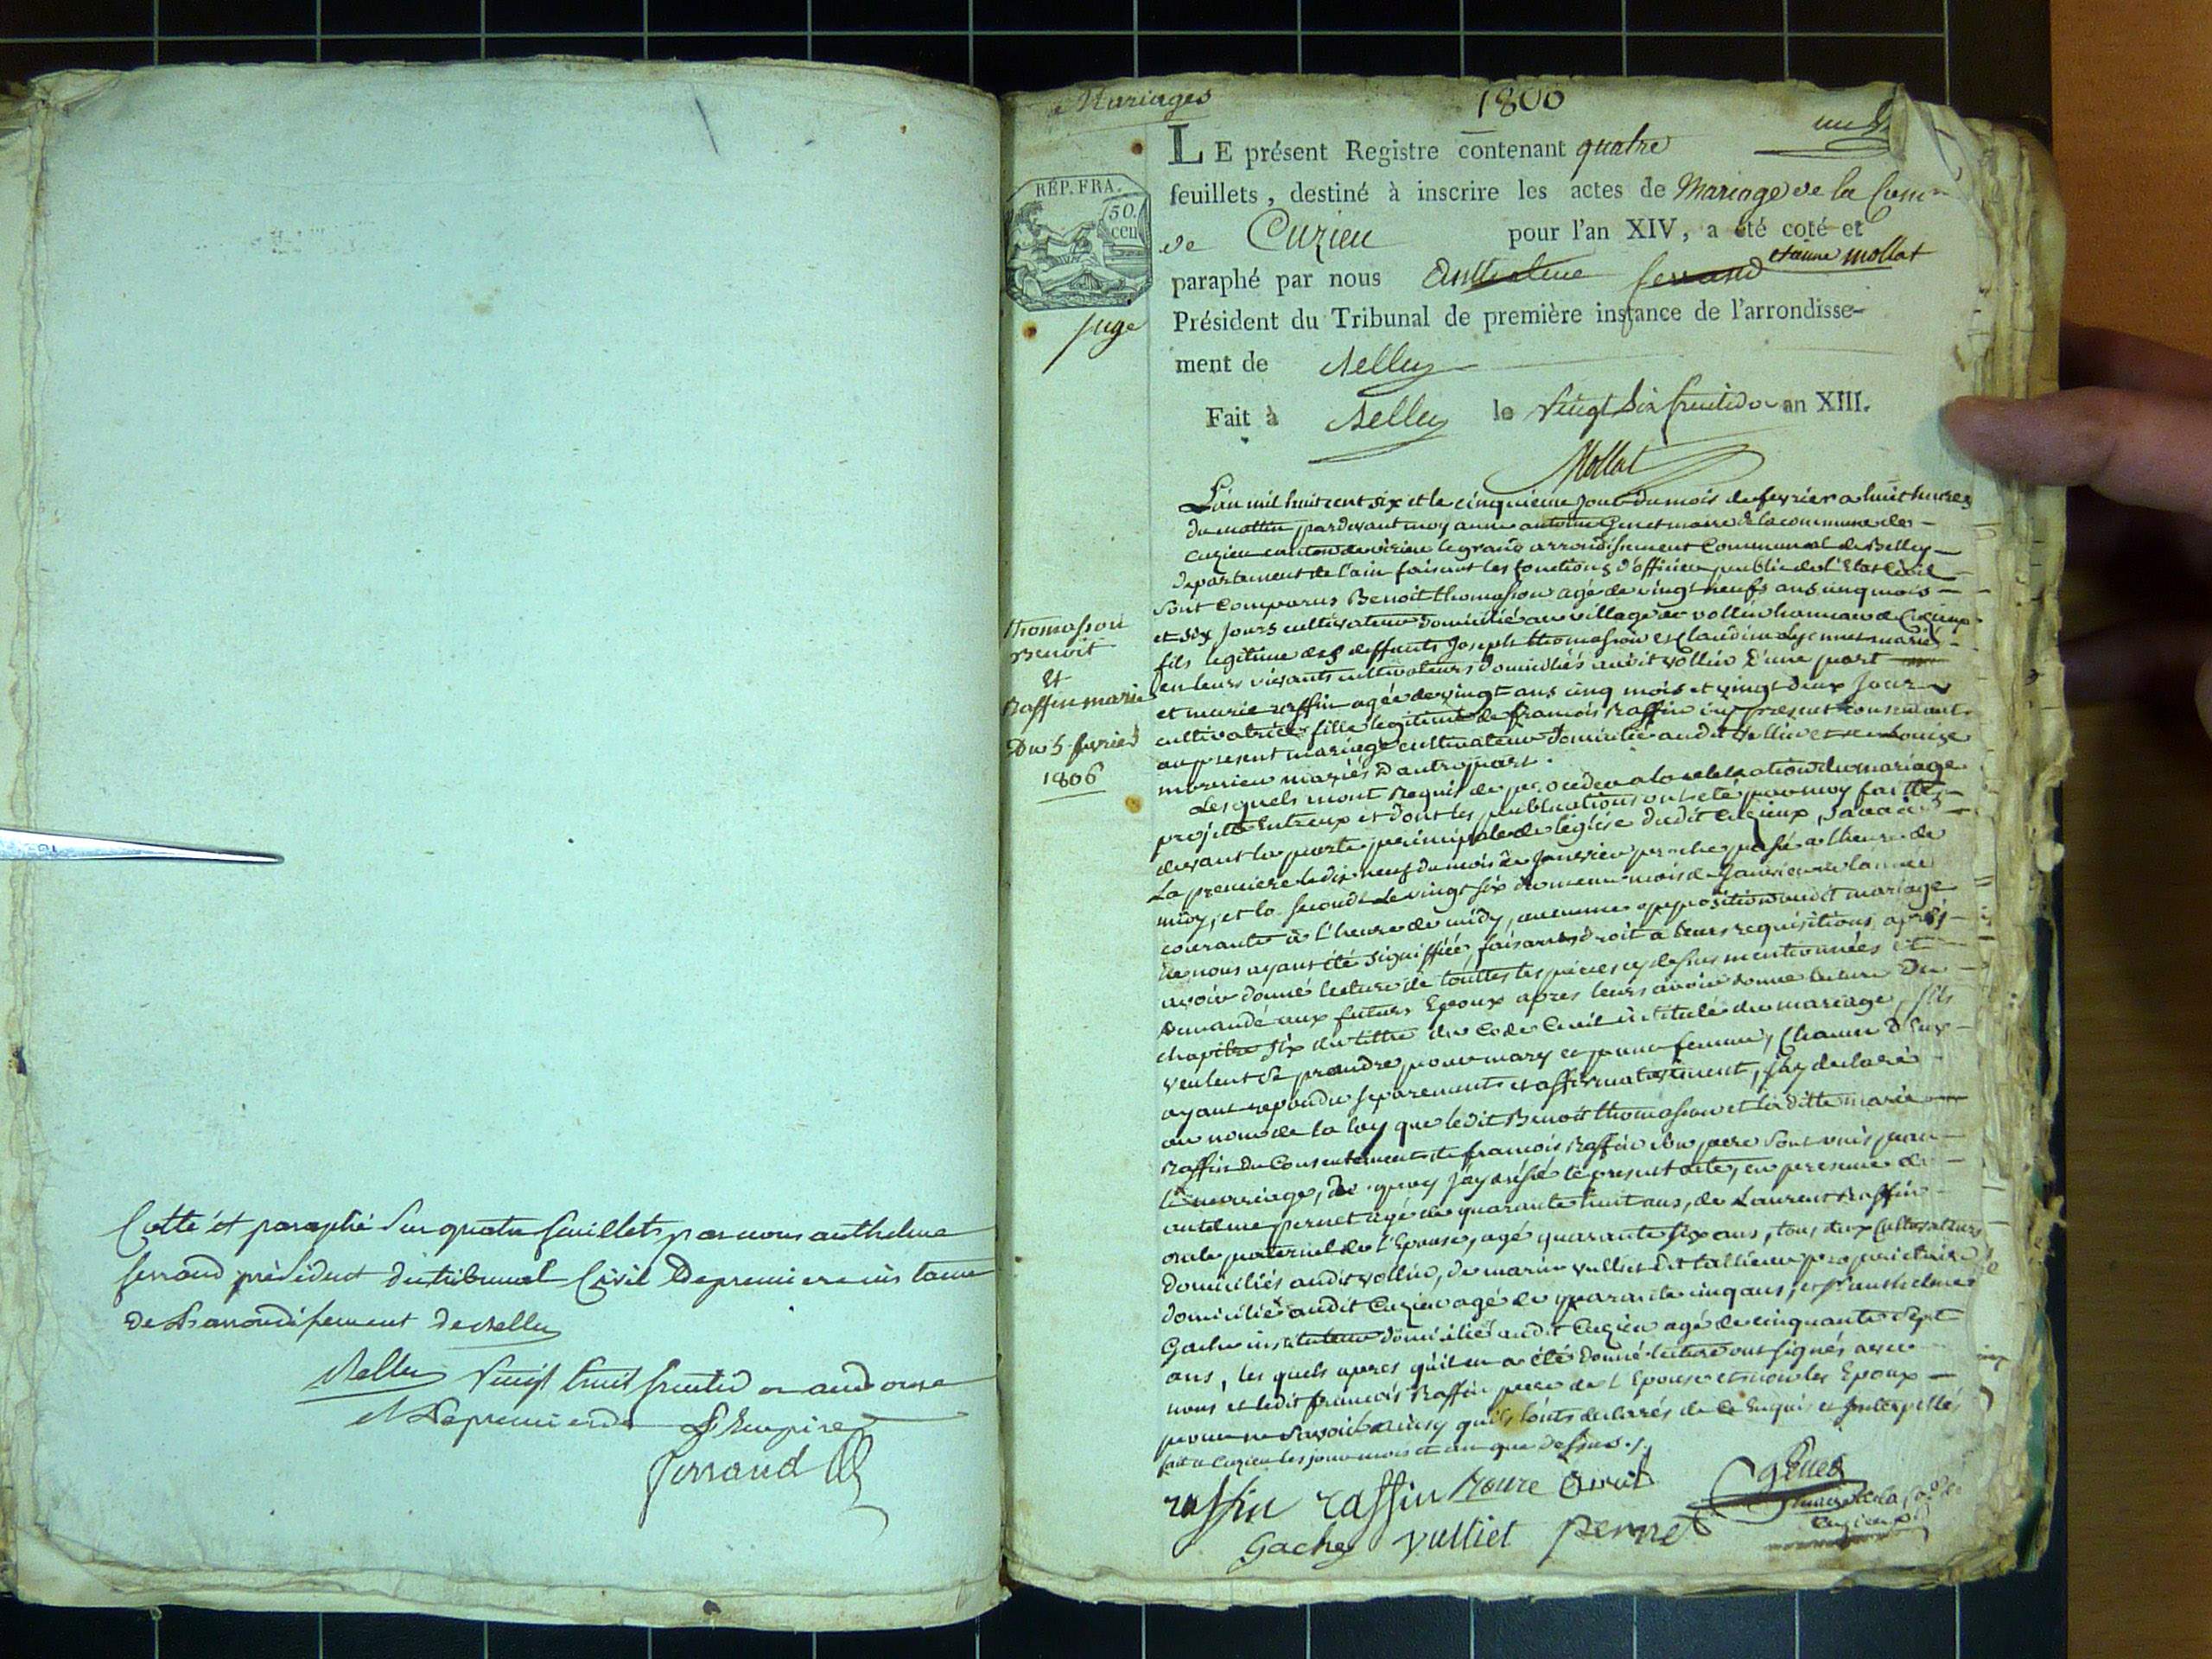 Cotté et paraphé sur quatre feuillets par nous anthelme
ferrand président du tribunal Civil De premiere instance
de L'arrondissement de belley
Belley vingt huit fructidor an douze
et Le premier de L'Empire
ferrand
Mariages
1806
LE présent Registre contenant quatre
feuillets, destiné à inscrire les actes de Mariage de la
de Cuzieu pour l'an XIV, a été coté et
paraphé par nous Anthelme ferrand mollat
Président du Tribunal de première instance de l'arrondisse-
ment de Belley
Fait à Belley le vingt six fructidor an XIII.
Mollat
RÉP. FRA.
50.
cen
juge
thomasson
Benoit
et
Raffin marie
Du 5 fevrier
1806
L'an mil huit cent six et le cinquieme jour du mois de fevrier a huit heures
du mattin pardevant moy Genet maire de la commune de
Cuzieu canton de virieu le grand arrondissement Communal de Belley
departement de l'ain faisant les fonctions d'officier public de l'Etat Civil
sont comparus Benoit thomasson agé de vingt neufs ans cinq mois
et six jours cultivateur domicilié au village de vollin hameau de Cuzieux
fils legitime des deffunts Joseph thomasson et Claudine mariés
en leurs vivants cultivateurs domiciliés audit vollin d'une part
et marie raffin agée de vingt ans cinq mois et vingt deux jours
cultivatrice fille legitime de francois Raffin icy present consentant
au present mariage cultivateur domicilié audit vollin et de Louise
mariés d'autre part.
Lesquels mont Requis de proceder a la celebration du mariage
projetté entreux et dont les publications ont eté par moy faittes
devant la porte principale de l'église dudit Cuzieux, savoir
La premiere le dix neuf du mois de janvier proche passé a lheure de
midy, et la seconde le vingt six du meme mois de janvier de lannée
courante à l'heure de midy, aucunne oppposition audit mariage
ne nous ayant été signiffiée, faisant droit a leurs requisitions, après
avoir donné lecture de touttes les pièces cy dessus mentionnées et
demandé aux futurs Epoux apres leurs avoir donné lecture du
chapitre six du tittre du Code Civil intitulé du mariage, sils
veulent se prendre pour mary et pour femme, Chacun d'Eux
ayant repondu separement et affirmativement, jay declaré
au nom de la loy que ledit Benoit thomasson et laditte marie
Raffin du Consentement de francois Raffin son pere sont unis par
le mariage, de quoy j'ay dréssé le present acte, en presence de
antelme pernet agé de quarante huit ans, de Laurent Raffin
oncle paternel de l'Epouse, agé quarante six ans, tous deux Cultivateurs
domiciliés audit vollin, de marin vulliet dit tallieur proprietaire
domicilié audit Cuzieu agé de quarante cinq ans, et d'anthelme
Gache instituteur domicilié audit Cuzieu agé de cinquante sept
ans, les quels apres qu'il en a été donné lecture ont signés avec
nous et ledit francois Raffin pere de l'Epouse et non les Epoux
pour ne savoir ainsy quils lonts declarés de ce Enquis et Interpellés
fait a Cuzieu les jour mois et an que dessus.
raffin raffin
genet
maire de la
Cuzieux
Gache vulliet pernet